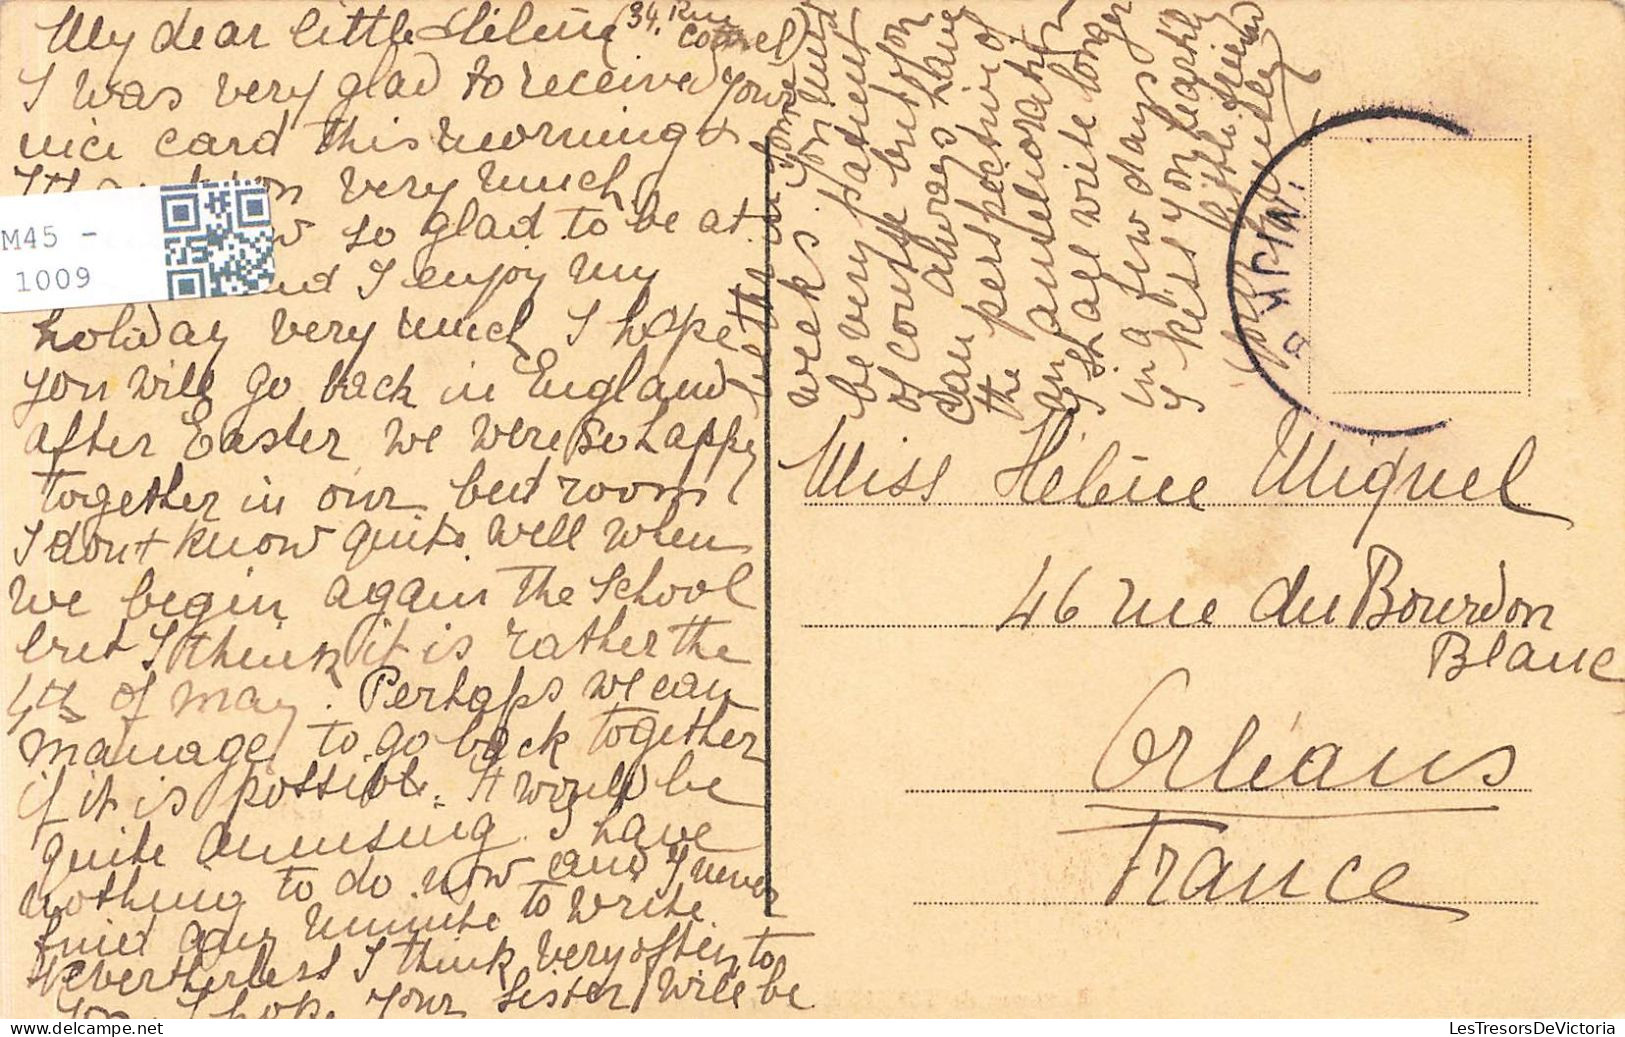 My dear little Hélène (34. Rue
Cottrel)
I was very glad to receive your
nice card this morning &
I thank you very much
so glad to be at
and I enjoy my
holiday very much I hope
you will go back in England
after Easter we were so happy
together in our bed room
I dont know quite well when
we begin again the school
but I think it is rather the
4th of May. Perhaps we can
manage to go back together
if it is possible. It would be
quite amusing I have
nothing to do now and I never
find any minute to write
Nevertherless I think very often to
you I hope your sister will be
better in some
weeks. You must
be very patient
of course but you
can always have
the perspective of
an amelioration
I shall write longer
in a few days
I kiss you heartily
little friend
M45 -
1009
Miss Hélène Miquel
46 rue du Bourdon
Blanc
Orléans
France
LesTresorsDeVictoria
https://www.delcampe.net/ME-Collections/LesTresors De Victoria